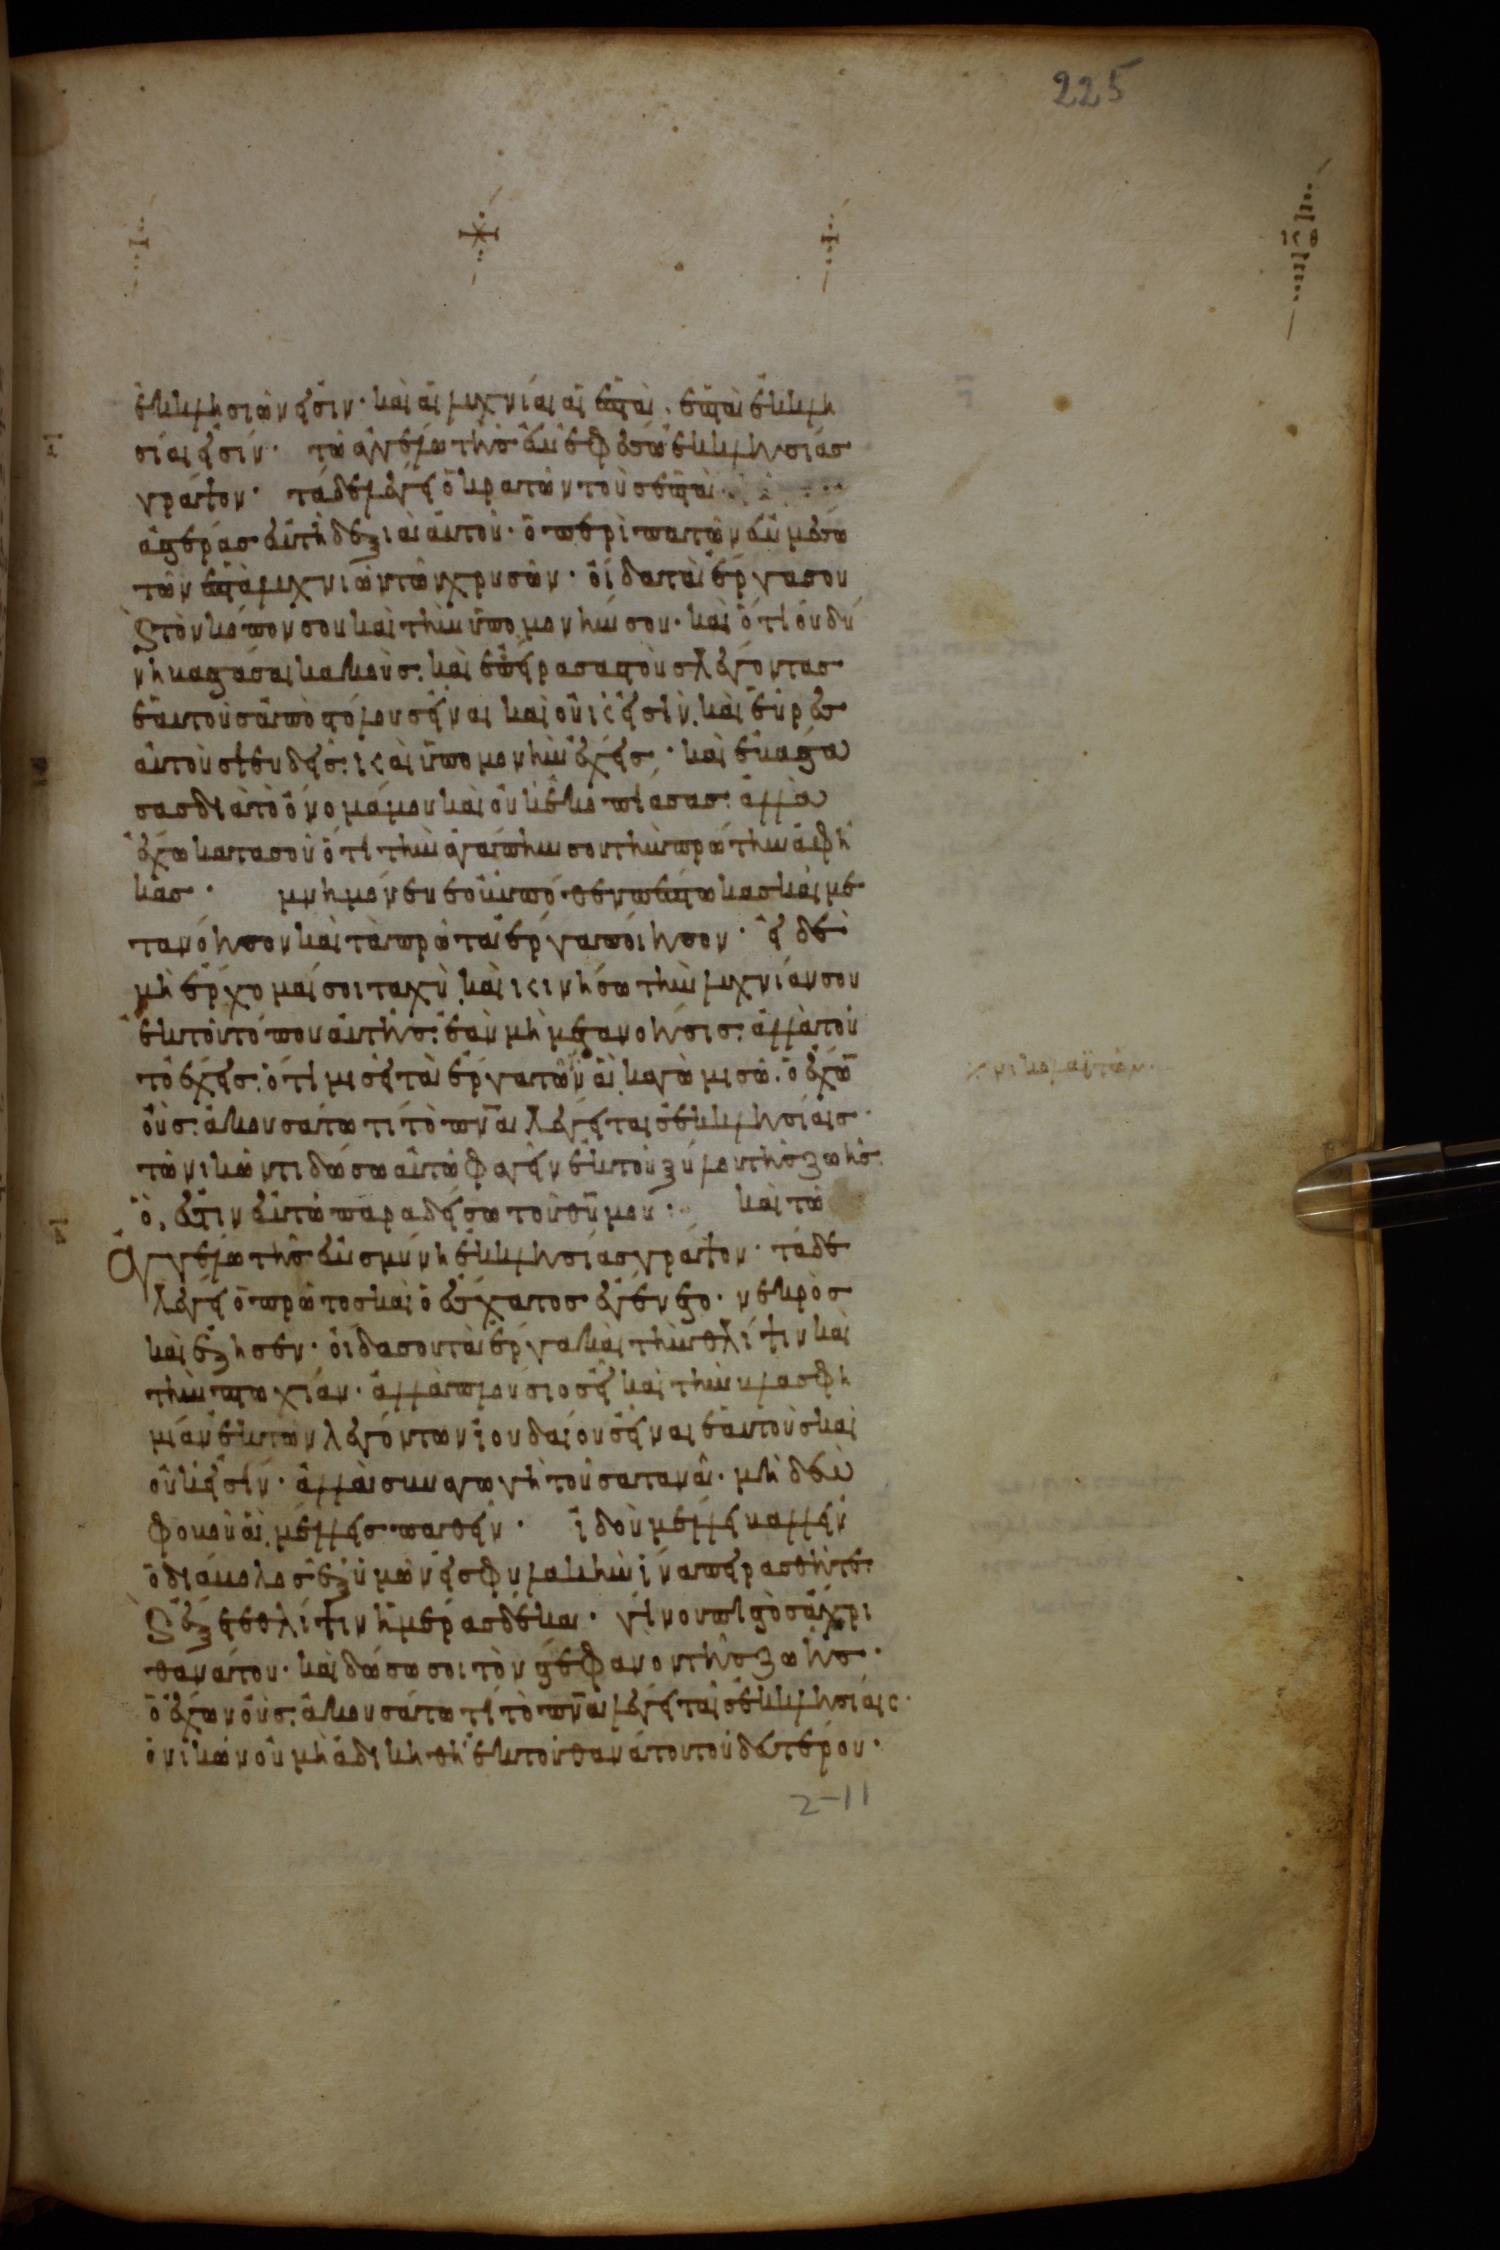 225
ἐκκλησιῶν εἰσιν· καὶ αἱ λυχνίαι αἱ ἑπτὰ, ἑπτὰ ἐκκλη
σίαι εἰσίν· τῶ ἀγγέλω τῆς ἐν ἐφέσω ἐκκλησίας
γράψον· τάδε λέγει ὁ κρατῶν τοὺς ἑπτὰ
ἀστέρας ἐν τῆ δεξιᾶ αὐτοῦ· ὁ περιπατῶν ἐν μέσω
τῶν ἑπτὰ λυχνιῶν τῶν χρυσῶν· οἶδα τὰ ἔργα σου
καὶ τὸν κόπον σου καὶ τὴν ὑπομονήν σου· καὶ ὅτι οὐ δύ
νη βαστάσαι κακοὺς· καὶ ἐπείρασας τοὺς λέγοντας
ἑαυτοὺς ἀποστόλους εἶναι καὶ οὐκ εἰσὶν, καὶ εὗρες
αὐτοὺς ψευδεῖς· καὶ ὑπομονὴν ἔχεις· καὶ ἐβάστα
σας διὰ τὸ ὄνομά μου καὶ οὐκ ἐκοπίασας· ἀλλὰ
ἔχω κατὰ σοῦ ὅτι τὴν ἀγάπην σου τὴν πρώτην ἀφῆ
κας· μνημόνευε οὖν πόθεν πέπτωκας καὶ με
τανόησον καὶ τὰ πρῶτα ἔργα ποίησον· εἰ δὲ
μὴ ἔρχομαί σοι ταχὺ, καὶ κινήσω τὴν λυχνίαν σου
ἐκ τοῦ τόπου αὐτῆς· ἐὰν μὴ μετανοήσις· ἀλλὰ τοῦ
το ἔχεις· ὅτι μισεῖς τὰ ἔργα τῶν ἃ καγὼ μισῶ· ὁ ἔχων
οὖς· ἀκουσάτω τί τὸ πνα λέγει ταῖς ἐκκλησίαις·
τῶ νικῶντι δώσω αὐτῶ φαγεῖν ἐκ τοῦ ξύλου τῆς ζωῆς·
ὅ, ἐστιν ἐν τῶ παραδείσω τοῦ θυ μου· καὶ τῶ
ἀγγέλω τῆς ἐν σμύρνη ἐκκλησίας γράψον· τάδε
λέγει ὁ πρῶτος καὶ ὁ ἔσχατος ὃς ἐγένετο νεκρὸς
καὶ ἔζησεν· οἶδα σου τὰ ἔργα καὶ τὴν θλίψιν καὶ
τὴν πτωχίαν· ἀλλὰ πλούσιος εἶ καὶ τὴν βλασφη
μίαν ἐκ τῶν λεγόντων ἰουδαίους εἶναι ἑαυτοὺς καὶ
οὐκ εἰσίν· ἀλλὰ συναγωγὴ τοῦ σατανᾶ· μηδὲν
φοβοῦ ἃ μέλλεις παθεῖν· ἰδοὺ μέλλει βαλλεῖν
ὁ διάβολος ἐξ ὑμῶν εἰς φυλακὴν ἵνα πειρασθῆτε·
καὶ ἕξετε θλίψιν ἡμέρας δέκα· γίνου πιστὸς ἄχρι
θανάτου· καὶ δώσω σοι τὸν στέφανον τῆς ζωῆς·
ὁ ἔχων οὖς· ἀκουσάτω τί τὸ πνα λέγει ταῖς ἐκκλησίαις·
ὁ νικῶν οὐ μὴ ἀδικηθῆ ἐκ τοῦ θανάτου τοῦ δευτέρου·
νικολαϊτῶν
2-11